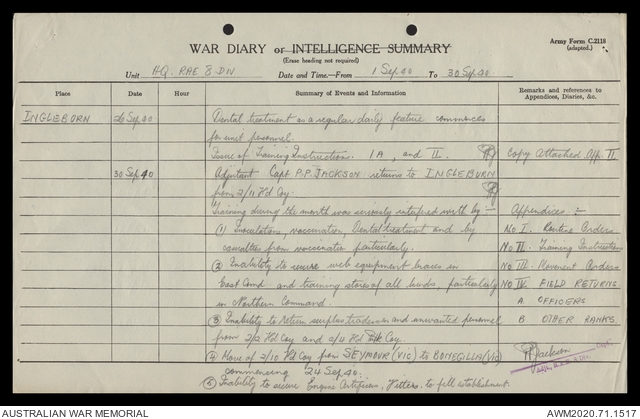 Army Form C.2118
(adapted.)
WAR DIARY or INTELLIGENCE SUMMARY
(Erase heading not required)
Unit HQ. RAE 8 DIV Date and Time.—From 1 Sep 40 To 30 Sep 40.
Place Date Hour Summary of Events and Information Remarks and references to Appendices, Diaries, &c.
INGLEBURN 26 Sep 40 Dental treatment as a regular daily feature commences
for unit personnel.
Issue of Training Instructions. 1A, and II. Copy Attached App. II
30 Sep 40 Adjutant Capt P.P. JACKSON returns to INGLEBURN
from 2/11 Fd Coy.
Training during the month was seriously interfered with by — Appendices :-
(1) Inoculations, vaccination, Dental treatment and by No I. Routine Orders
casualties from vaccination particularly. No II. Training Instructions
(2) Inability to secure web equipment braces in No III. Movement Orders
East Comd and training stores of all kinds, particularly No IV. FIELD RETURNS
in Northern Command. A. OFFICERS
(3) Inability to return surplus tradesmen and unwanted personnel B OTHER RANKS.
from 2/2 Fd Coy and 2/4 Fd Pk Coy
(4) Move of 2/10 Fd Coy from SEYMOUR (VIC) to BONEGILLA (VIC) Jackson
commencing 24 Sep 40.
(5) Inability to secure Engine Artificers, Fitters, to fill establishment.
AUSTRALIAN WAR MEMORIAL
AWM2020.71.1517